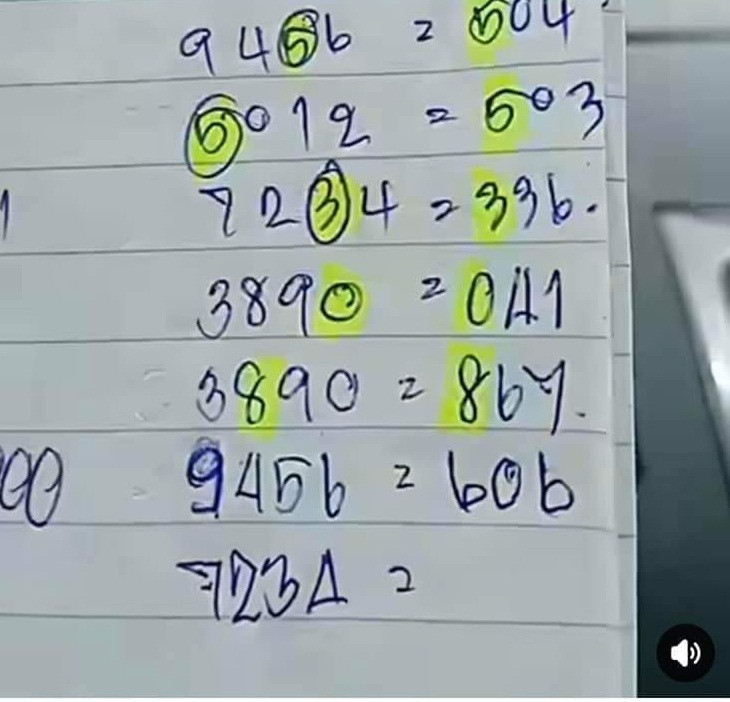 9456 = 504
5012 = 503
7234 = 336.
3890 = 041
3890 = 867.
9456 = 606
7234 =